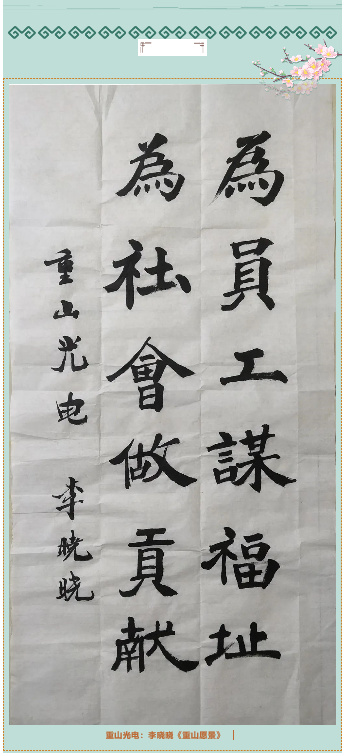 為員工謀福址
為社會做貢献
重山光电 李晓晓
重山光电：李晓晓《重山愿景》